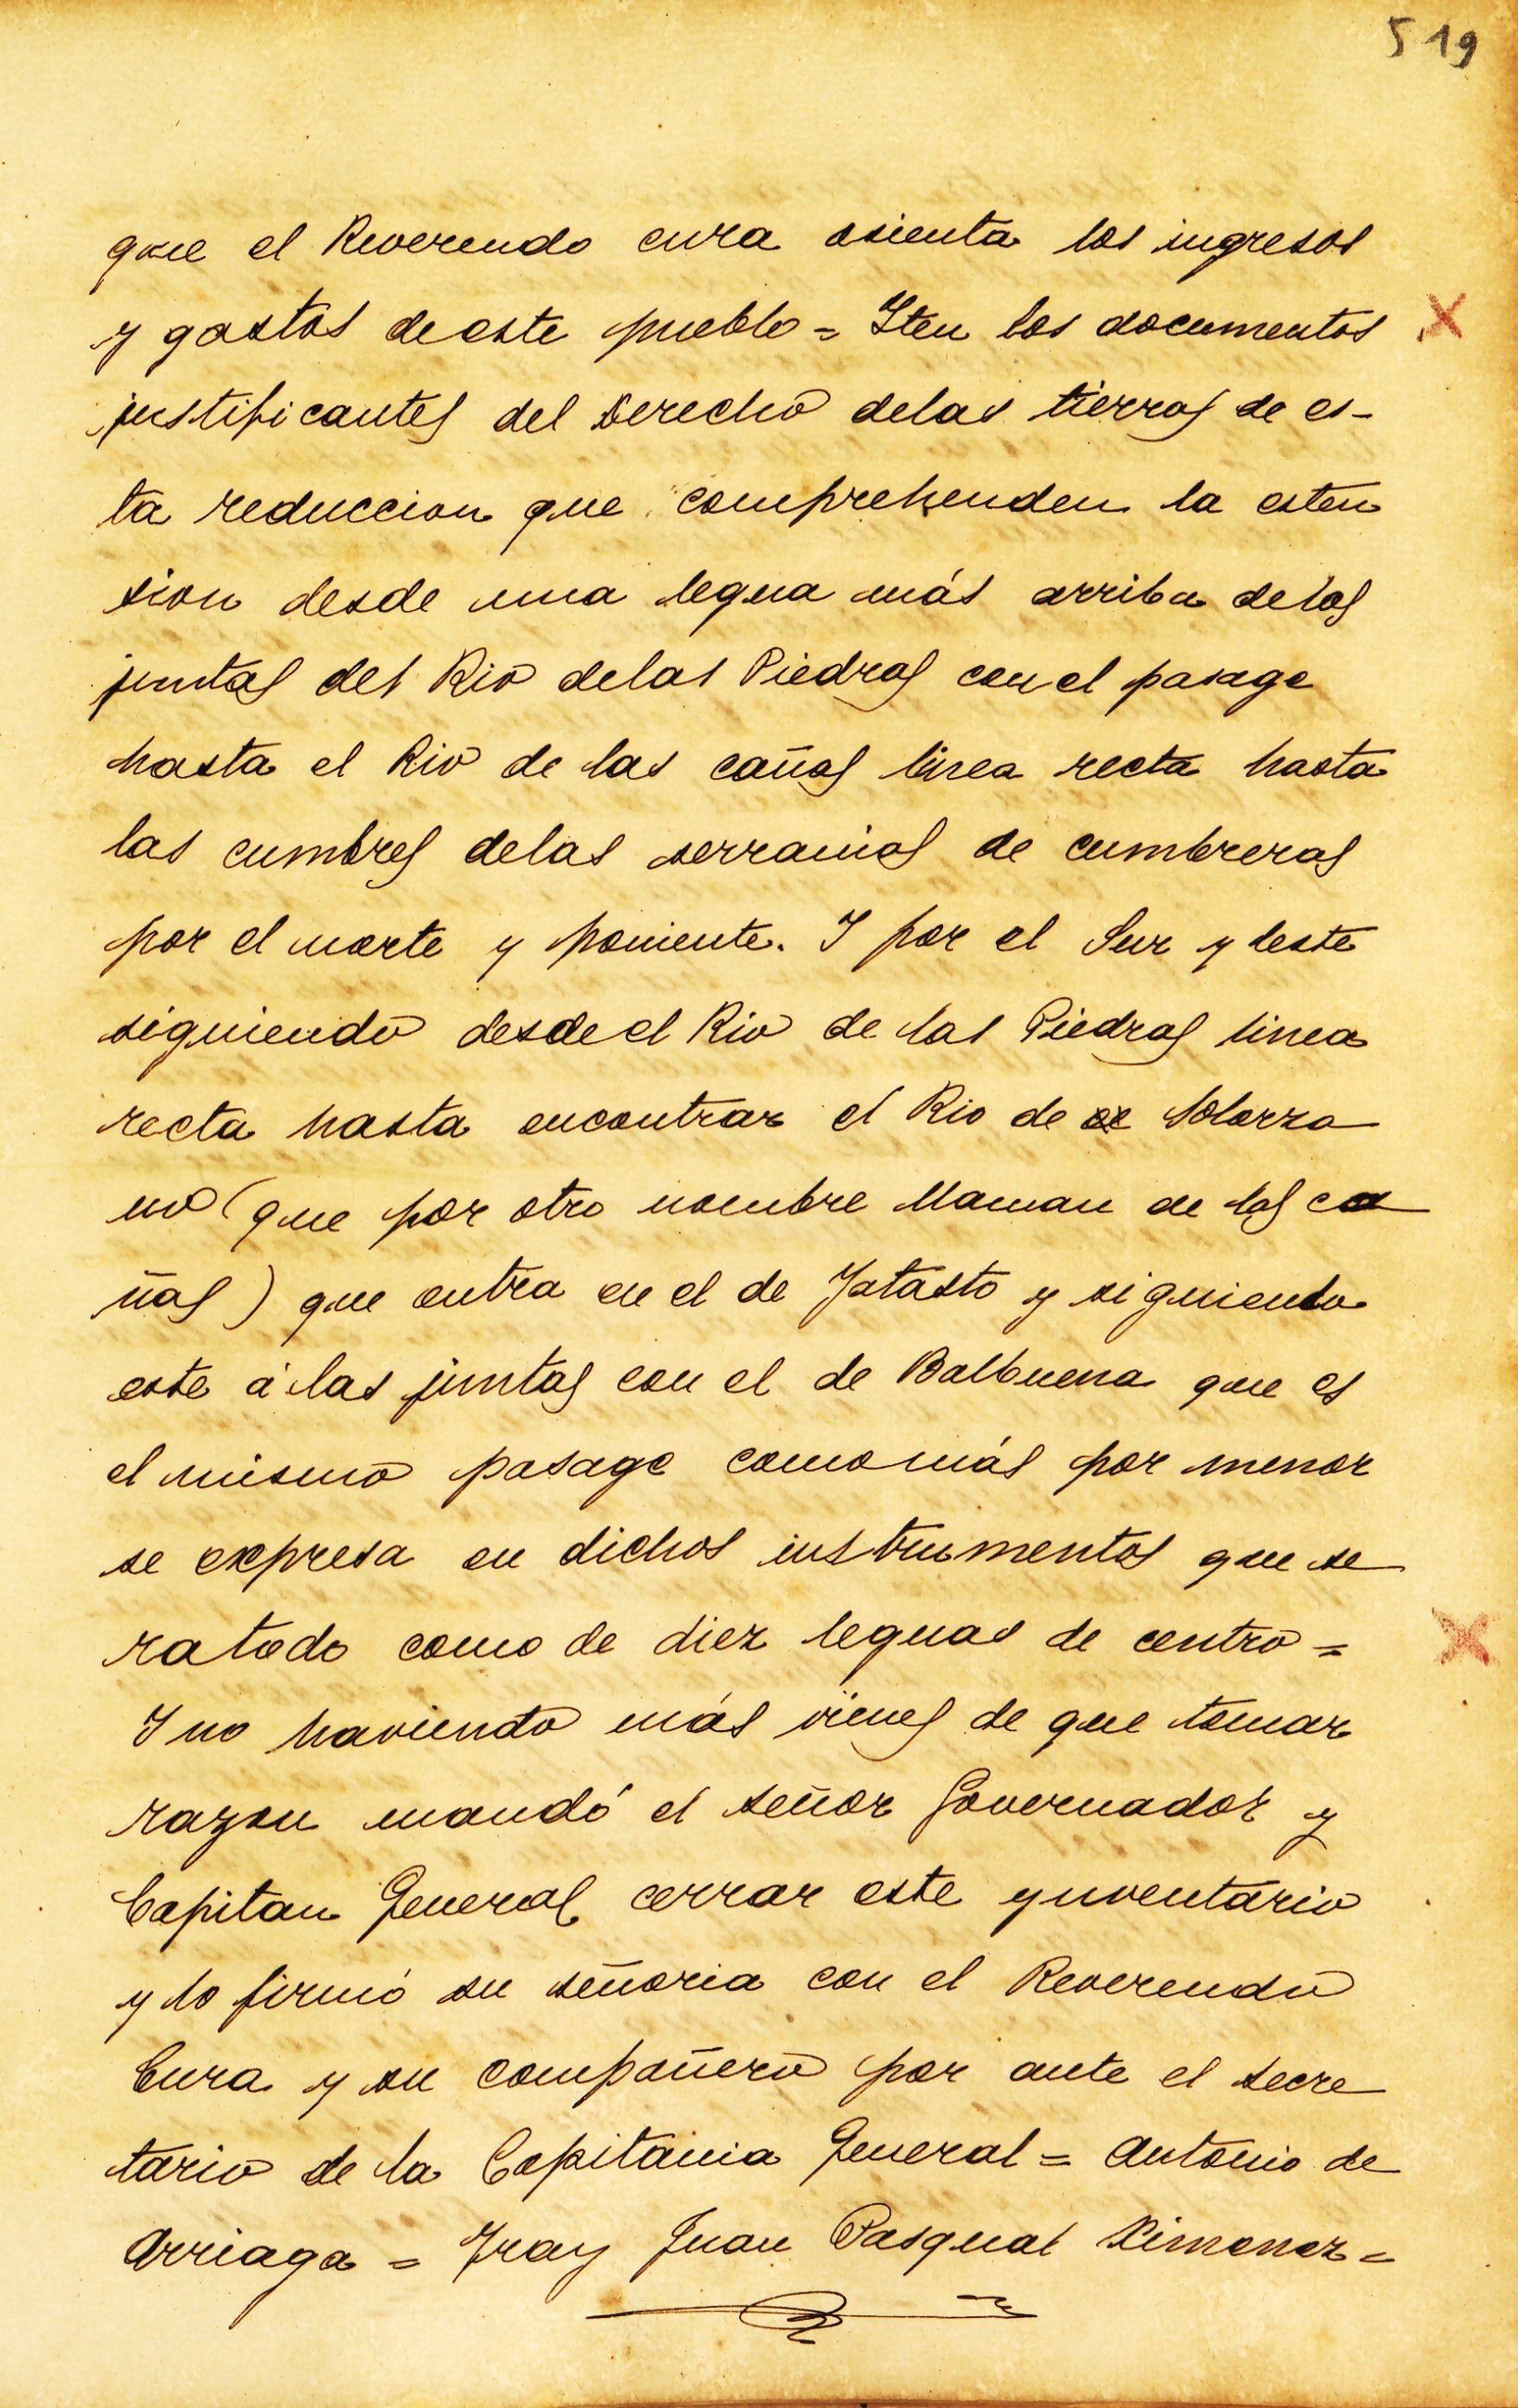 519
que el Reverendo cura asienta los ingresos
y gastos de este pueblo = Iten los documentos
justificantes del Derecho delas tierras de es-
ta reduccion que comprehenden la esten
sion desde una legua más arriba delas
juntas del Rio delas Piedras con el pasage
hasta el Rio de las cañas linea recta hasta
las cumbres delas serranias de cumbreras
por el norte y poniente. I por el Sur y leste
siguiendo desde el Rio de las Piedras linea
recta hasta encontrar el Rio de de Solorza
no (que por otro nombre llaman de las ca
ñas) que entra en el de Yatasto y siguiendo
este á las juntas con el de Balbuena que es
el mismo pasage como más por menor
se expresa en dichos instrumentos que se
ra todo como de diez leguas de centro =
I no haviendo más vienes de que tomar
razon mandó el señor Governador y
Capitan General cerrar este ynventario
y lo firmó su señoria con el Reverendo
Cura y su compañero por ante el secre
tario de la Capitania General = Antonio de
Arriaga = Fray Juan Pasqual Ximenez =